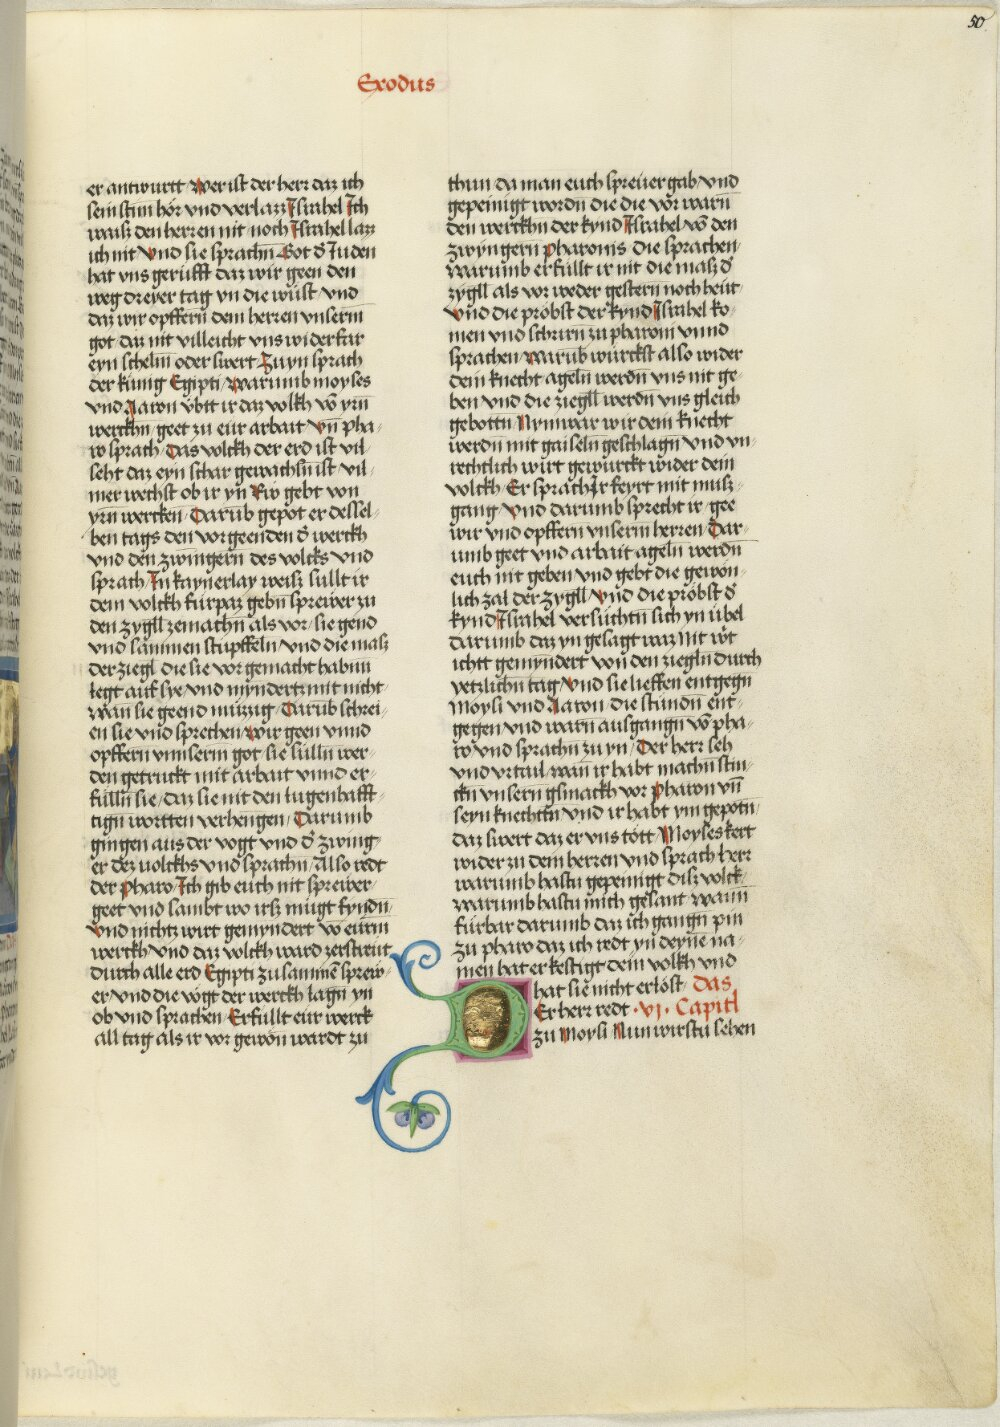 50
Exodus
er antwurtt Wer ist der herr daz ich
sein stim hör vnd verlazz Israhel Ich
waisz den herren nit noch Israhel lazz
ich nit Vnd sie sprachn̄ Got d̄ Juden
hat vns gerüfft daz wir geen den
weg dreyer tag yn die wüst vnd
daz wir opffern̄ dem herren vnserm
got daz nit villeicht vns widerfar
eyn schelm̄ oder swert Zu yn sprach
der künig Egipti Warumb moyses
vnd Aaron v̈btt ir daz volkh vō yrn̄
werckhn̄ geet zu eur arbait Vn̄ pha-
ro sprach Das volckh der erd ist vil
seht daz eyn schar gewachsn̄ ist vil-
mer wechst ob ir yn̄ Rw gebt von
yrn̄ wercken Darūb gepot er dessel-
ben tags den vorgeenden d̄ werckh
vnd den zwingern̄ des volcks vnd
sprach In kaynerlay weisz sullt ir
dem volckh fürpaz gebn̄ sprewer zu
den zygll zemachn̄ als vor / sie gend
vnd sammen stupffeln / vnd die masz
der ziegl die sie vor gemacht habnn
legt auf sye vnd mynndertz mit nicht
wān sie geend müzzig Darūb schrei-
en sie vnd sprechen Wir geen vnnd
opffern vnnserm got sie sülln̄ wer-
den getruckt mit arbait vnnd er-
fülln̄ sie / daz sie nit den lugenhafft-
tign̄ wortten verhengen Darumb
gingen aus der vogt vnd d̄ zwing-
er dez uolckhs vnd sprachn̄ / Also redt
der Pharo Ich gib euch nit sprewer-
geet vnd sambt wo irsz mügt fyndn̄
Vnd nichtz wirt gemyndert vō eurm̄
werckh vnd daz volckh ward zerstraut
durch alle erd Egipti zu sammen̄ sprew-
er vnd die vögt der werckh lagn̄ yn
ob vnd sprachen Erfüllt eur werck
all tag als ir vor gewon̄ wardt zu
thun da man euch spreuer gab vnd
gepeinigt wordn̄ die die vor warn̄
den werckhn̄ der kynd Israhel vō den
zwyngern̄ Pharonis die sprachen
warumb erfüllt ir nit die masz d̄
zygll als vor weder gestern̄ noch heut
Vnd die pröbst der kynd Israhel ko-
men vnd schrirn̄ zu pharoni vnnd
sprachen Warūb würckst also wider
dein knecht ageln̄ werdn̄ vns nit ge-
ben vnd die ziegll werdn̄ vns gleich
gebottn̄ Nym war wir dein knecht
werdn̄ mit gaiseln̄ geschlagn̄ vnd vn-
rechtlich wirt gewürckt wider dein
volckh Er sprach Ir feyrt mit musz-
gang Vnd darumb sprecht ir gee
wir vnd opffern vnserm herren Dar-
umb geet vnd arbait ageln̄ werdn̄
euch nit geben vnd gebt die gewon-
lich zal der zygll Vnd die pröbst d̄
kynd Israhel versuchtn̄ sich yn übel
darumb daz yn gesagt waz Nit wirt
ichtt gemyndert von den ziegln̄ durch
yetzlichn̄ tag Vnd sie lieffen entgegn̄
Moysi vnd Aaron die stundn̄ ent-
gegen vnd warn̄ ausgangn̄ vō pha-
ro vnd sprachn̄ zu yn Der herr seh
vnd vrtail wan̄ ir habt machn̄ stin-
ckn̄ vnsern gsmackh vor Pharon vn̄
seyn knechtn̄ vnd ir habt ym gepotn̄
daz swert daz er vns tött Moyses kert
wider zu dem herren vnd sprach herr
warumb hastu gepeinigt disz volck
warumb hastu mich gesant wann
fürbar darumb daz ich gangn̄ pin
zu pharo daz ich redt yn̄ deyne na-
men hat er kestigt dein volkh vnd
hat sie nicht erlöst Das
Er herr redt .VI. Capitl
zu Moysi Nun wirstu sehen